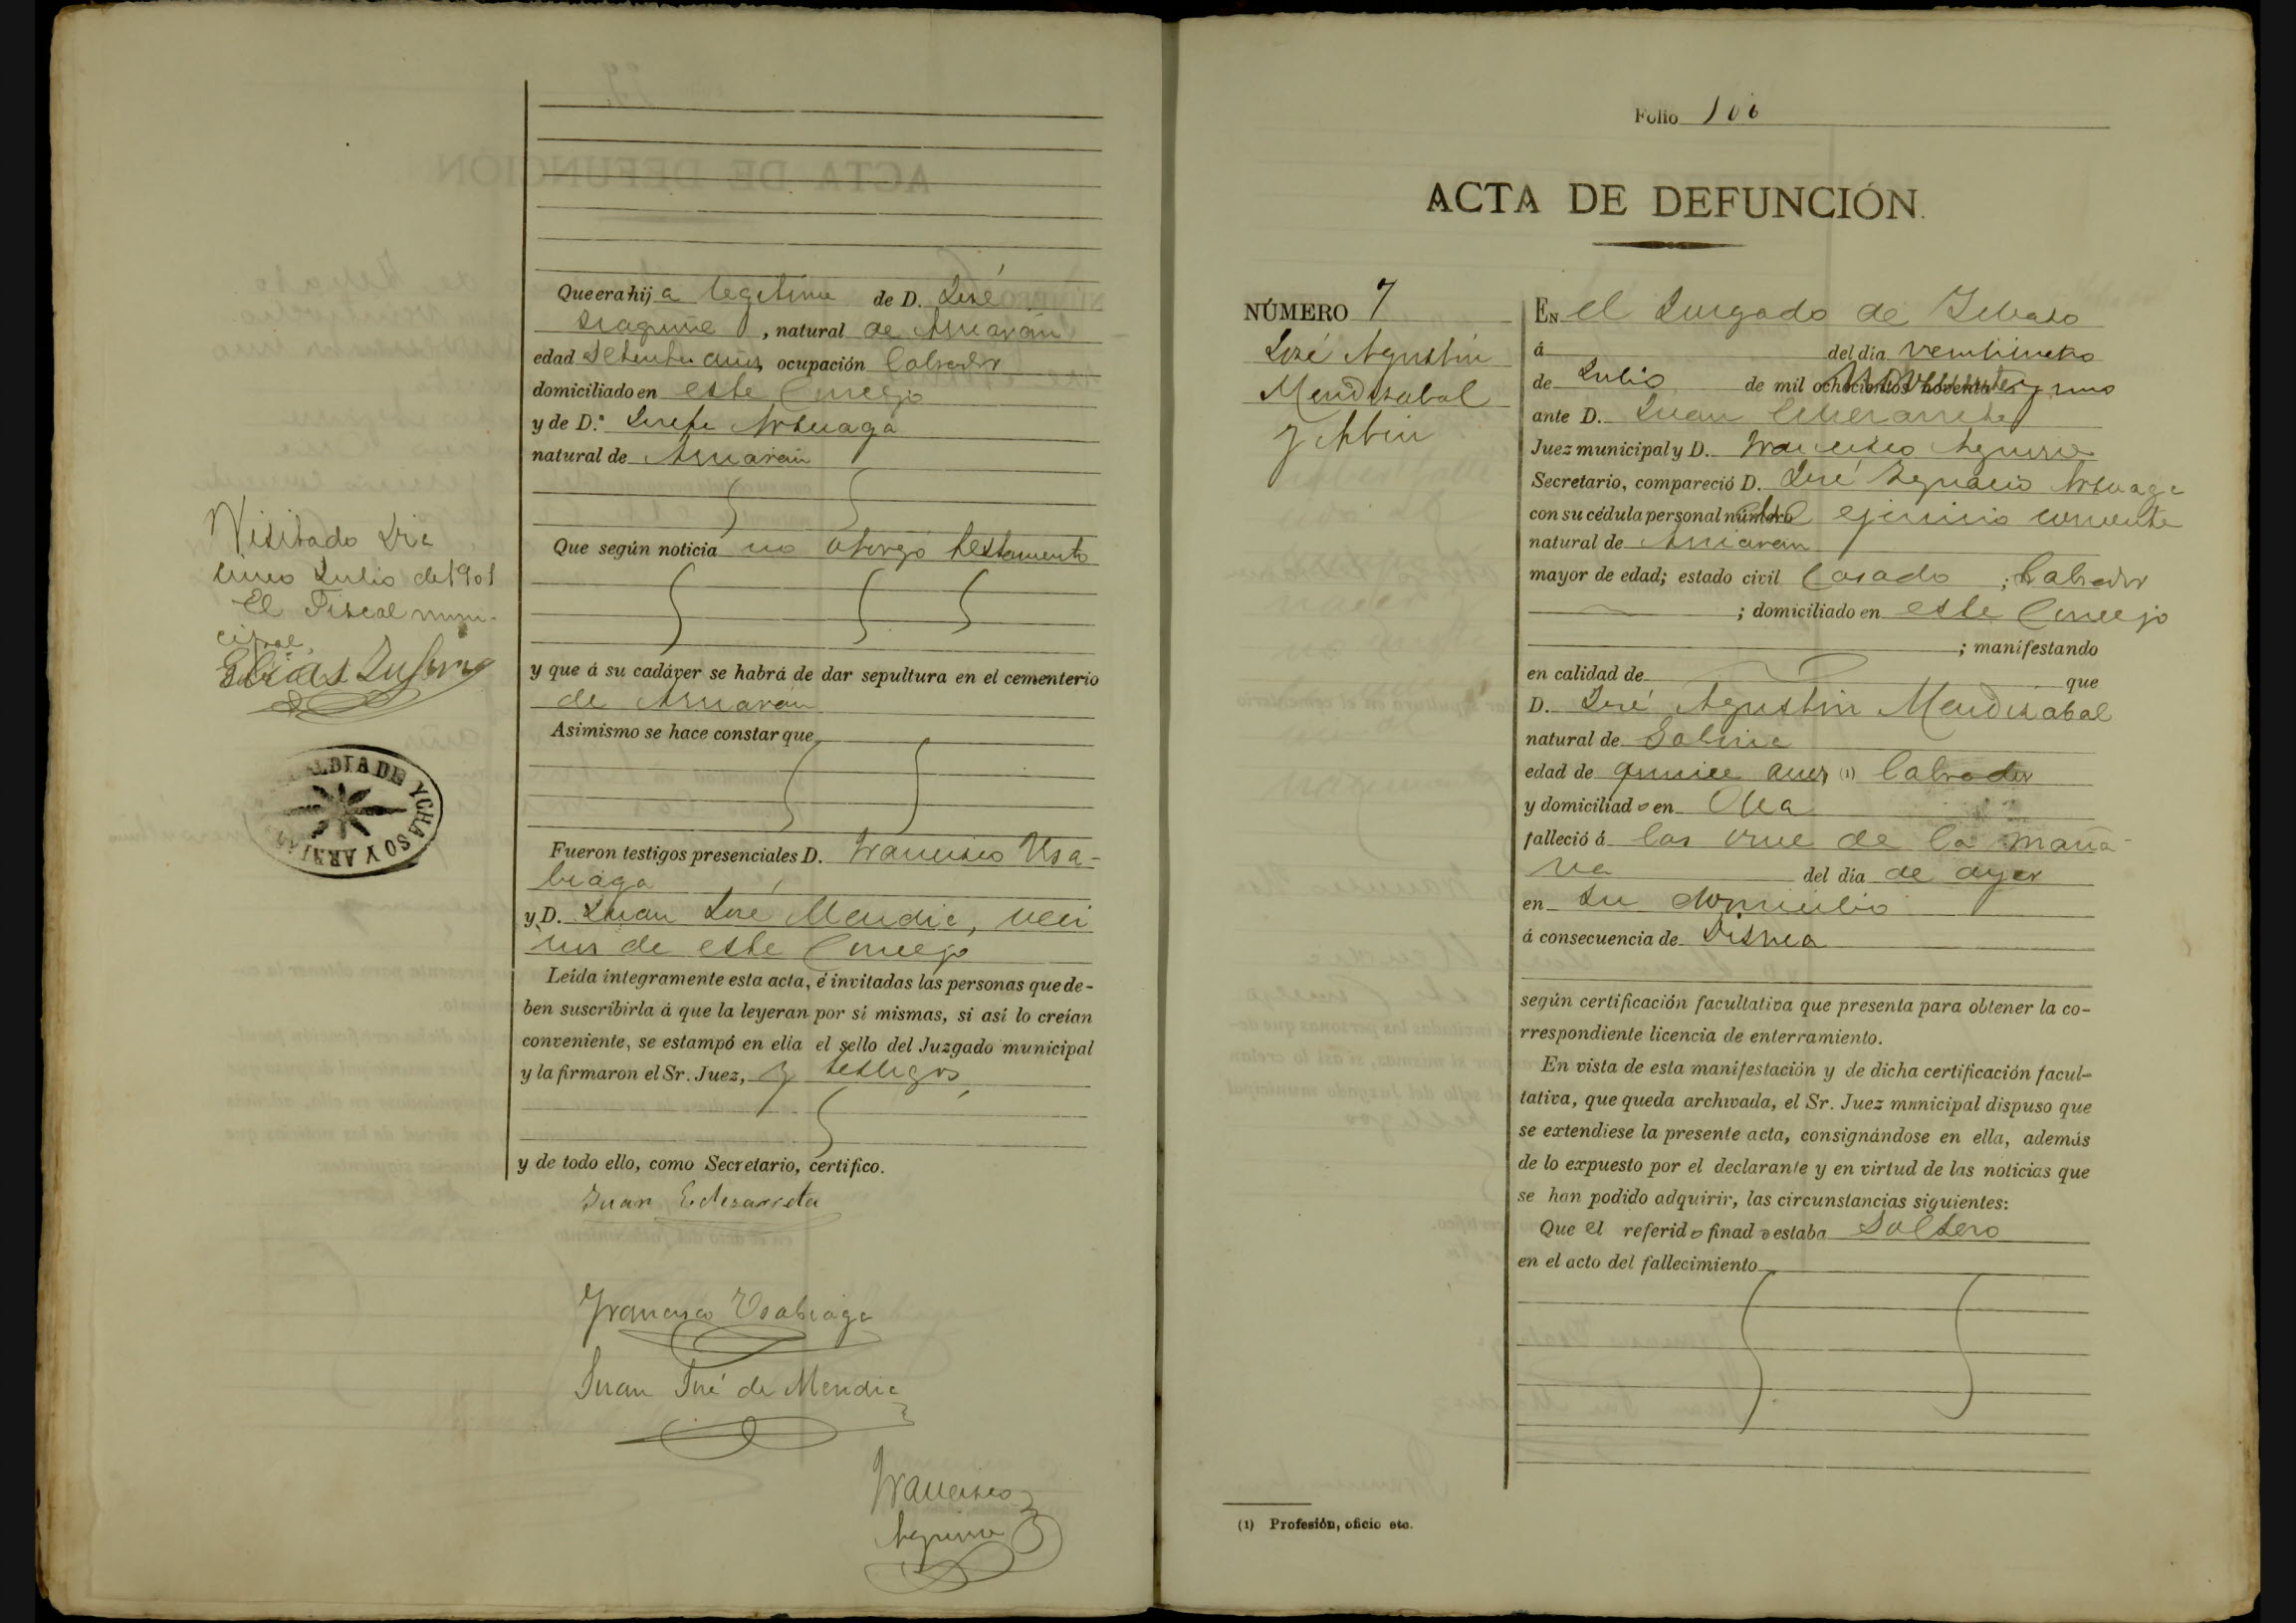 Que era hija legitima de D. José
, natural de Arriarán
edad setenta años, ocupación labrador
domiciliado en este Concejo
y de D.ª Josefa Artuaga
natural de Arriarán
Que según noticia no otorgó testamento
y que á su cadáver se habrá de dar sepultura en el cementerio
de Arriarán
Asimismo se hace constar que
Fueron testigos presenciales D. Francisco Usa-
biaga
y D. Juan José Mendia, veci
nos de este Concejo
Leída íntegramente esta acta, é invitadas las personas que de-
ben suscribirla á que la leyeran por sí mismas, si así lo creían
conveniente, se estampó en ella el sello del Juzgado municipal
y la firmaron el Sr. Juez, y testigos
y de todo ello, como Secretario, certifico.
Juan Echezarreta
Francisco Usabiaga
Juan José de Mendia
Francisco
Aguirre
Visitado dia
cinco Julio de 1901
El Fiscal muni-
cipal
Elias
ALDIA DE YCHASO Y ARRIA
Folio 100
ACTA DE DEFUNCIÓN.
NÚMERO 7
José Agustin
Mendizabal
y
EN el Juzgado de
á del dia veintinueve
de Julio de mil ochocientos noventa y uno
ante D. Juan Echezarreta
Juez municipal y D. Francisco Aguirre
Secretario, compareció D. José Ygnacio Artuaga
con su cédula personal número ejercicio corriente
natural de Arriarán
mayor de edad; estado civil Casado ; labrador
; domiciliado en este Concejo
; manifestando
en calidad de que
D. José Agustin Mendizabal
natural de
edad de quince años, (1) labrador
y domiciliado en Olea
falleció á las once de la maña-
na del dia de ayer
en su domicilio
á consecuencia de Disnea
según certificación facultativa que presenta para obtener la co-
rrespondiente licencia de enterramiento.
En vista de esta manifestación y de dicha certificación facul-
tativa, que queda archivada, el Sr. Juez municipal dispuso que
se extendiese la presente acta, consignándose en ella, además
de lo expuesto por el declarante y en virtud de las noticias que
se han podido adquirir, las circunstancias siguientes:
Que el referido finado estaba soltero
en el acto del fallecimiento
(1) Profesión, oficio etc.